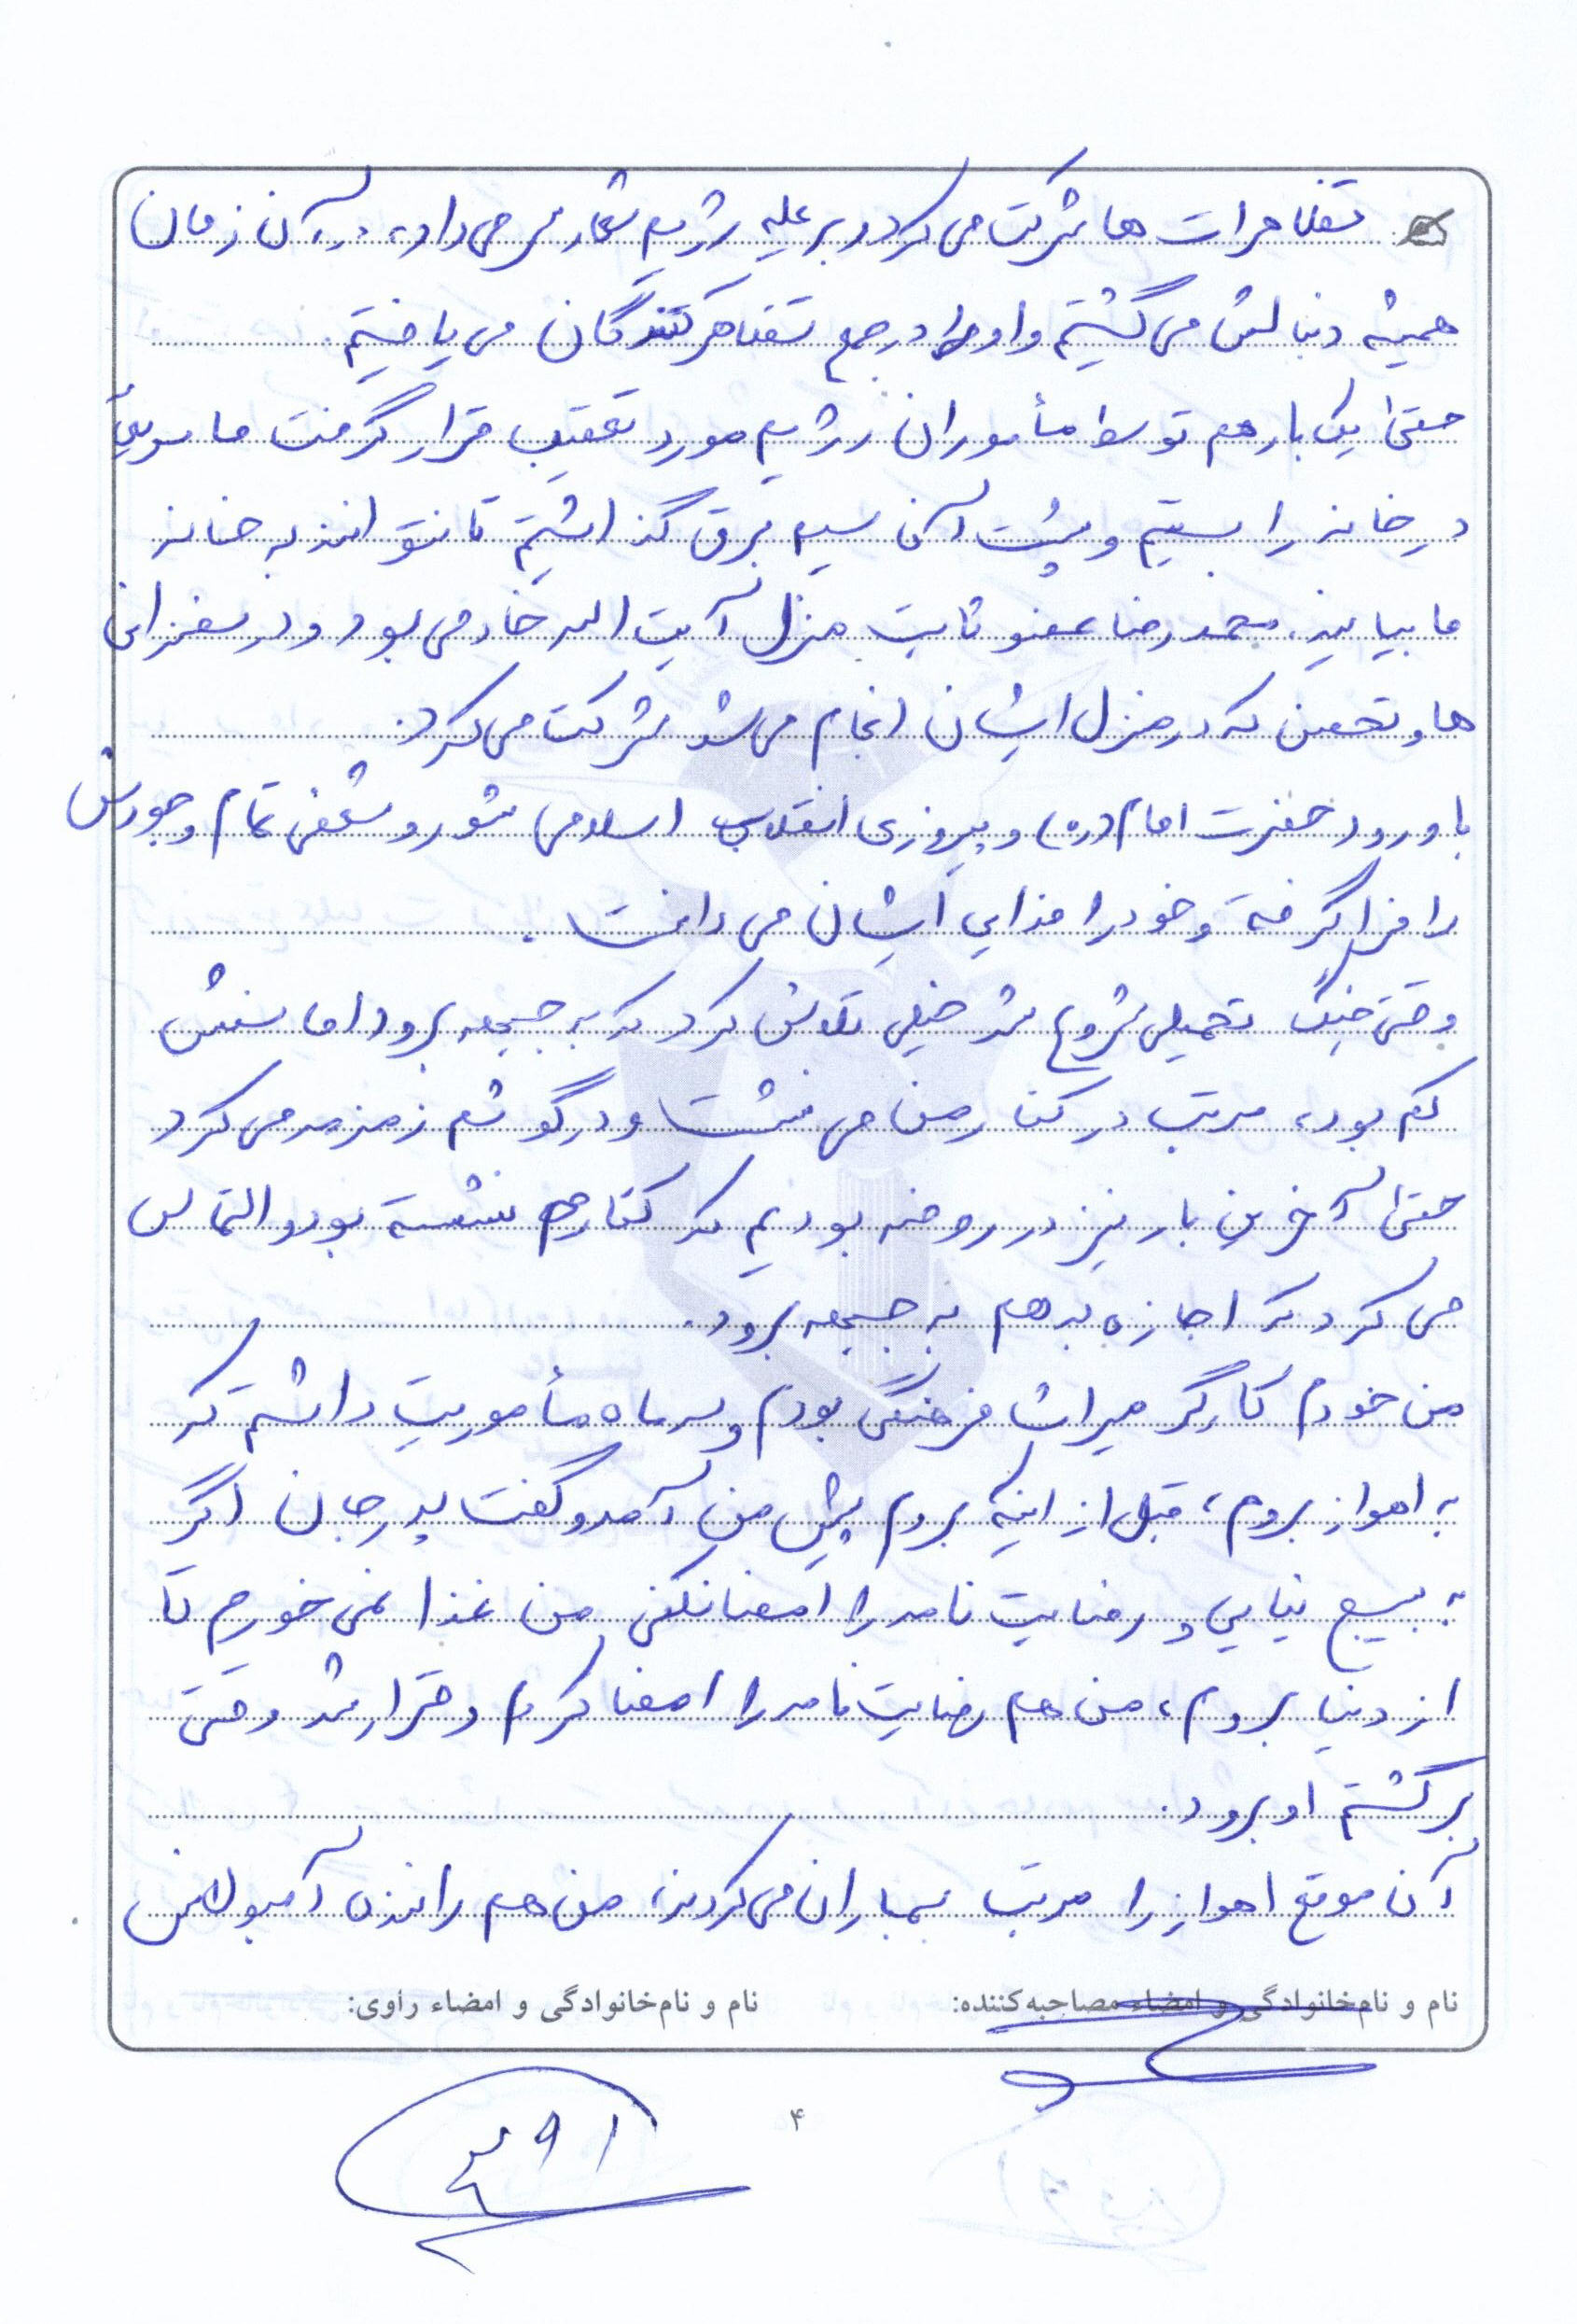 تظاهرات ها شرکت می کرد و بر علیه رژیم شعار سر می داد، در آن زمان
همیشه دنبالش می گشتیم و او را در جمع تظاهر کنندگان می یافتیم.
حتی یک بار هم توسط مأموران رژیم مورد تعقیب قرار گرفت ما سریعاً
در خانه را بستیم و پشت آن سیم برق گذاشتیم تا نتوانند به خانه
ما بیایند. محمدرضا عضو ثابت منزل آیت الله خادمی بود و در سخنرانی
ها و تحصن که در منزل ایشان انجام می شد شرکت می کرد.
با ورود حضرت امام (ره) و پیروزی انقلاب اسلامی شور و شعفی تمام وجودش
را فرا گرفته و خود را فدایی ایشان می دانست.
وقتی جنگ تحمیلی شروع شد خیلی تلاش کرد که به جبهه برود اما سنش
کم بود، مرتب در کنار من می نشست و در گوشم زمزمه می کرد
حتی آخرین بار نیز در روضه بودیم که کنارم نشسته بود و التماس
می کرد که اجازه بدهم به جبهه برود.
من خودم کارگر میراث فرهنگی بودم و سه ماه مأموریت داشتم که
به اهواز بروم، قبل از اینکه بروم پیش من آمد و گفت پدر جان اگر
به بسیج نیایی و رضایت نامه را امضا نکنی من غذا نمی خورم تا
از دنیا بروم، من هم رضایت نامه را امضا کردم و قرار شد وقتی
برگشتم او برود.
آن موقع اهواز را مرتب بمباران می کردند، من هم راننده آمبولانس
نام و نام‌خانوادگی و امضاء مصاحبه‌کننده:
نام و نام‌خانوادگی و امضاء راوی:
۴